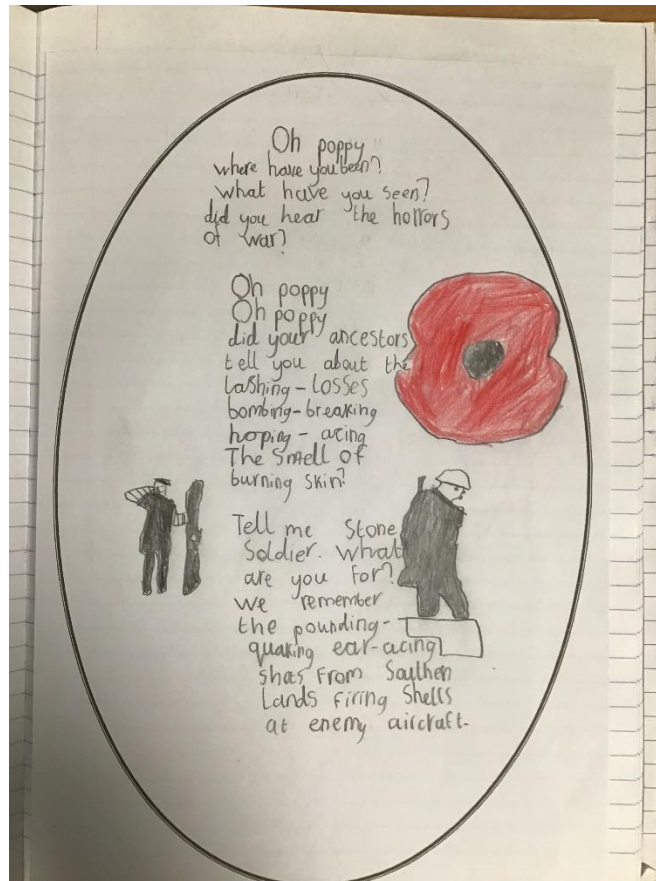 Oh poppy
where have you been?
what have you seen?
did you hear the horrors
of war?
Oh poppy
Oh poppy
did your ancestors
tell you about the
Lashing-Losses
bombing-breaking
hoping-acing
The smell of
burning skin?
Tell me Stone
Soldier. What
are you for?
we remember
the pounding-
quaking ear-acing
shots from Southen
Lands firing Shells
at enemy aircraft.